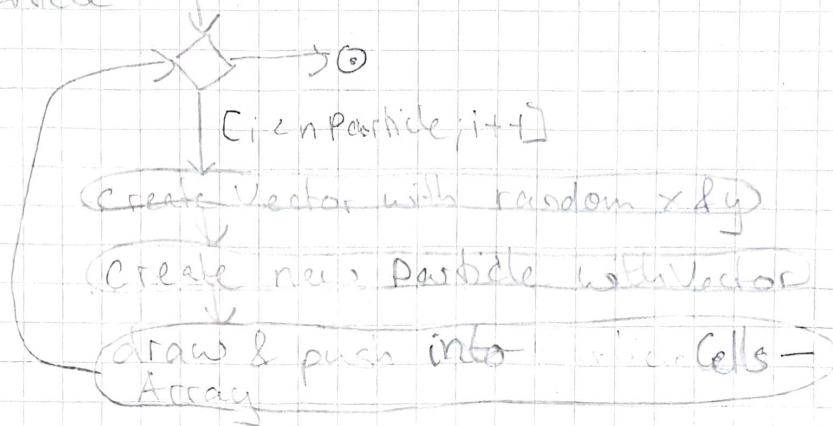 [i < nParticle; i++]
create Vector with random x & y
Create new Particle with Vector
draw & push into Cells-
Array